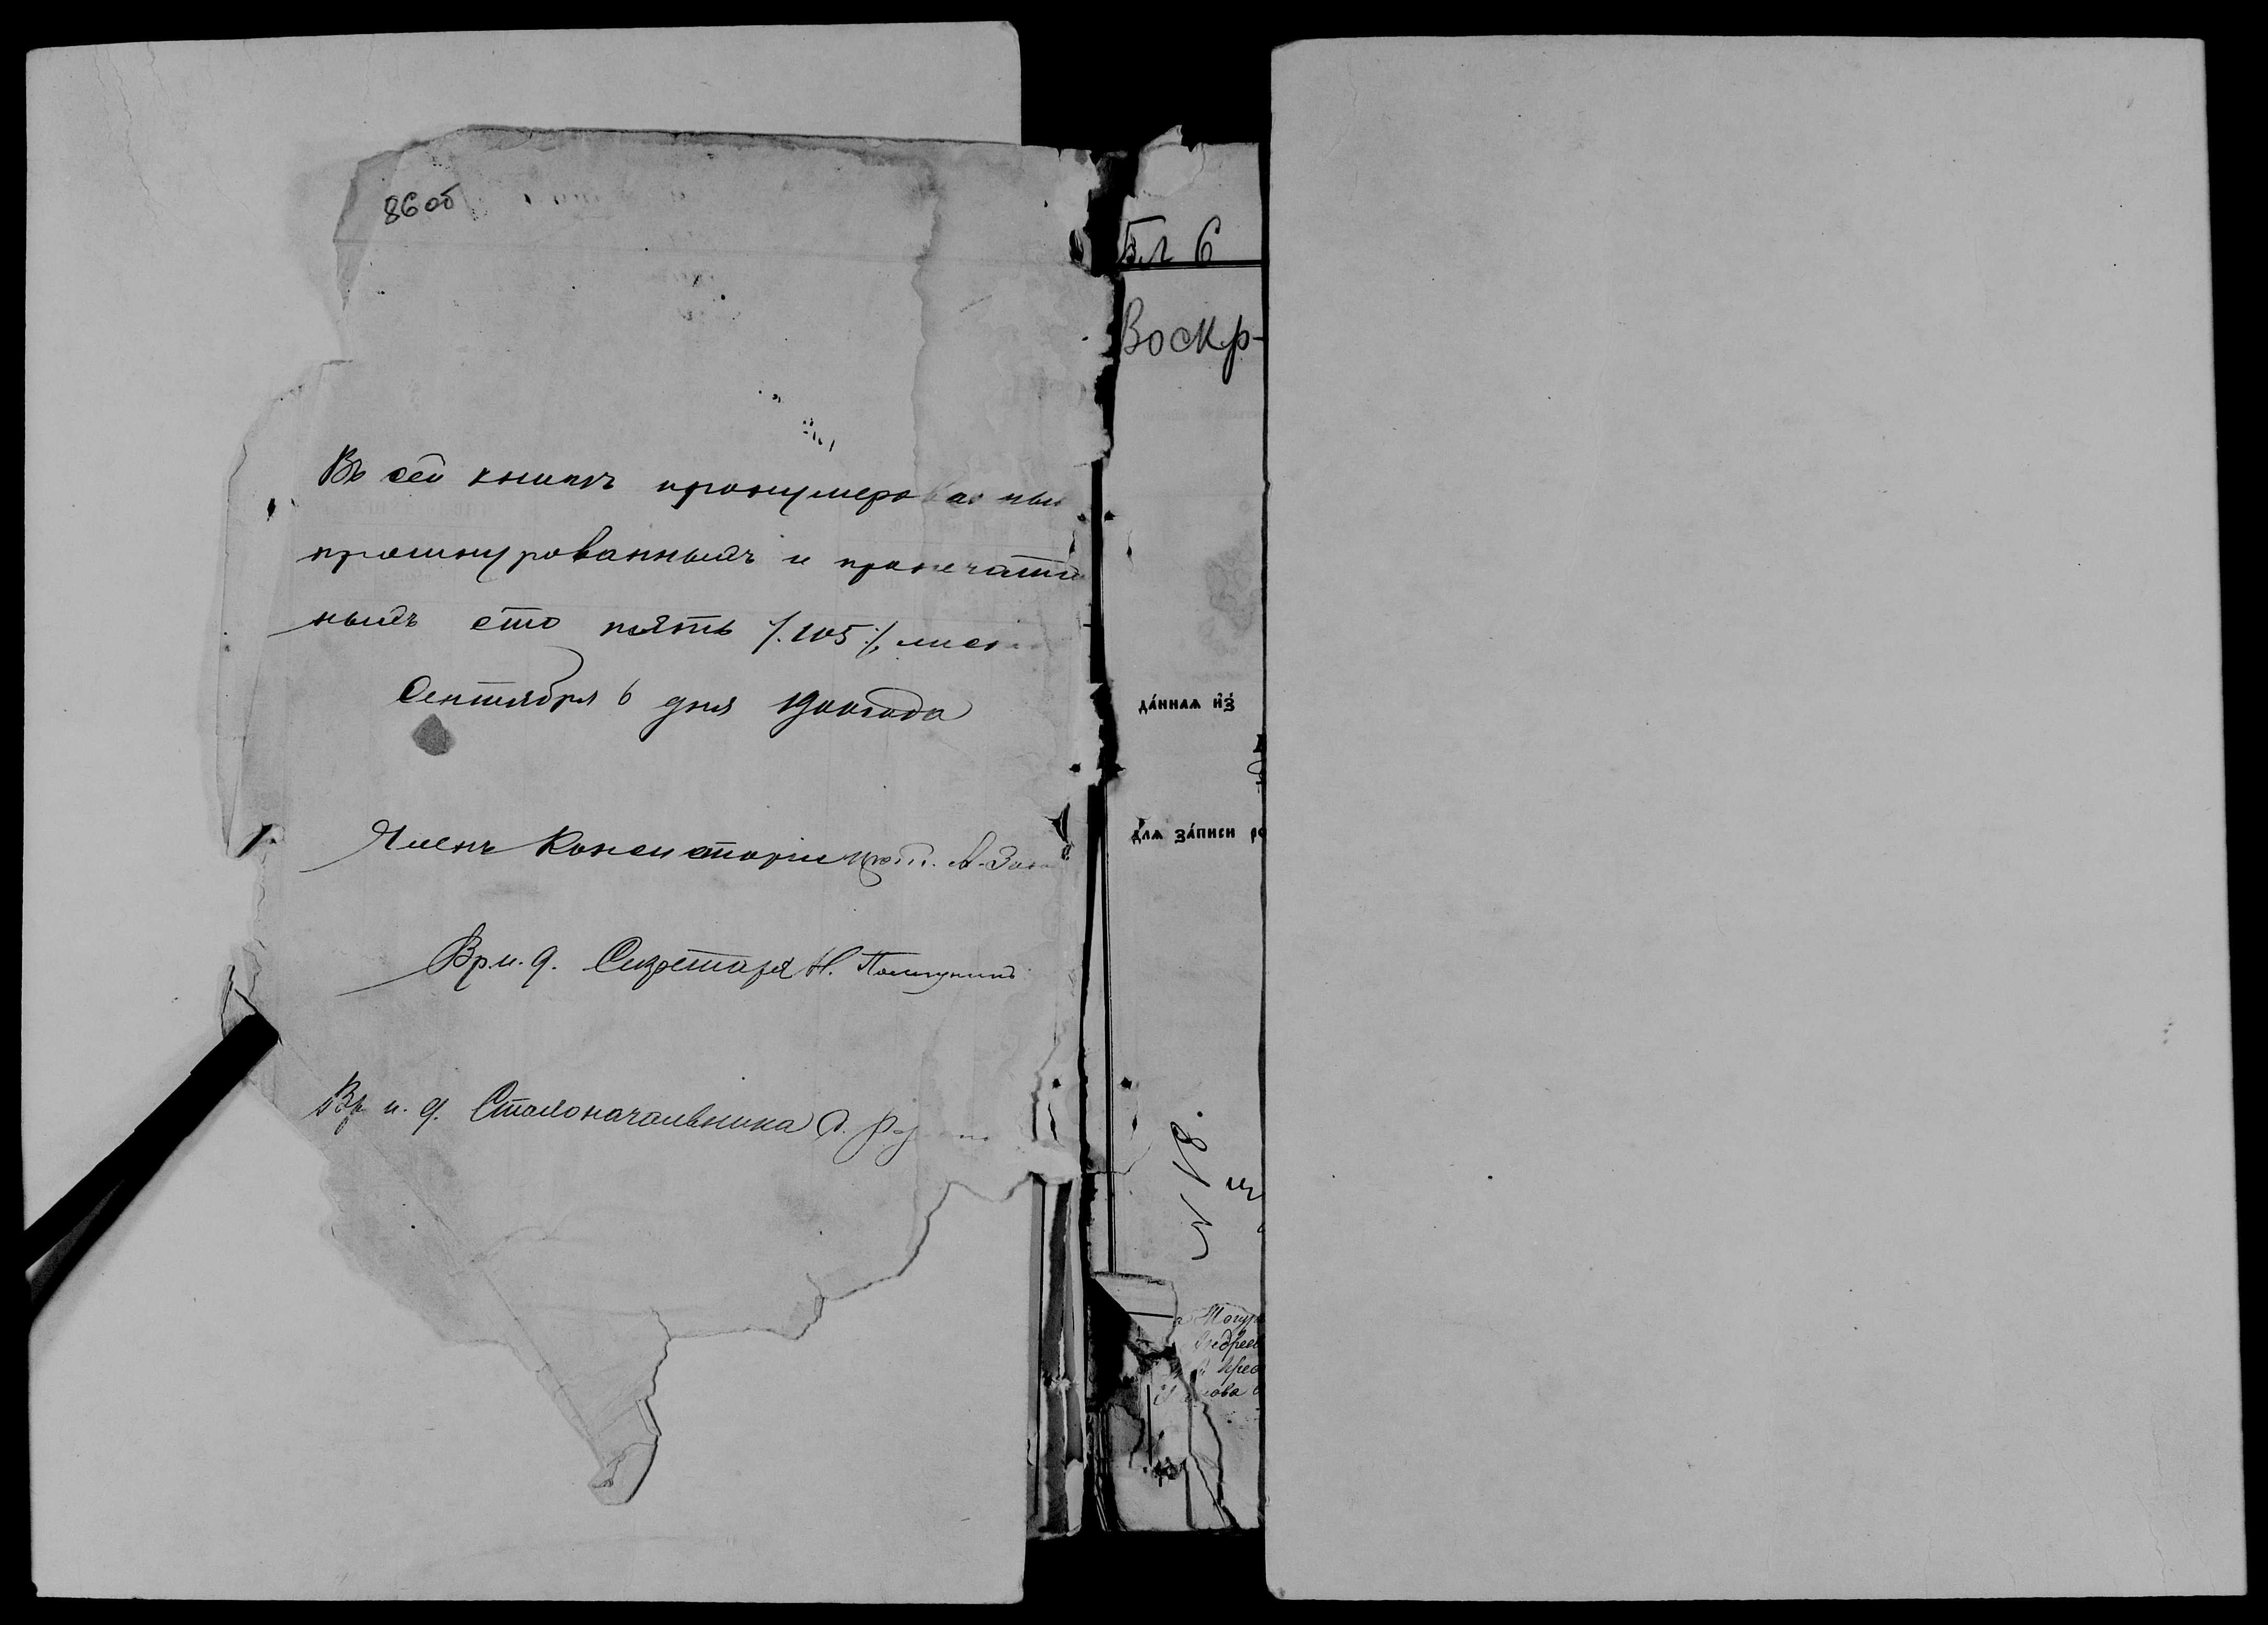 86 об
Въ сей книгѣ пронумерованны
прошнурованныхъ и пропечата
ныхъ сто пять /.105./. лис
Сентября 6 дня 1900 года
Членъ Консисторіи прот. А.
Вр. и. д. Секретаря Н.
Вр и. д. Столоначальника
Бл 6
Воскр-
да́ннаѧ и҆з̾
длѧ за́писи ро
№ 18.